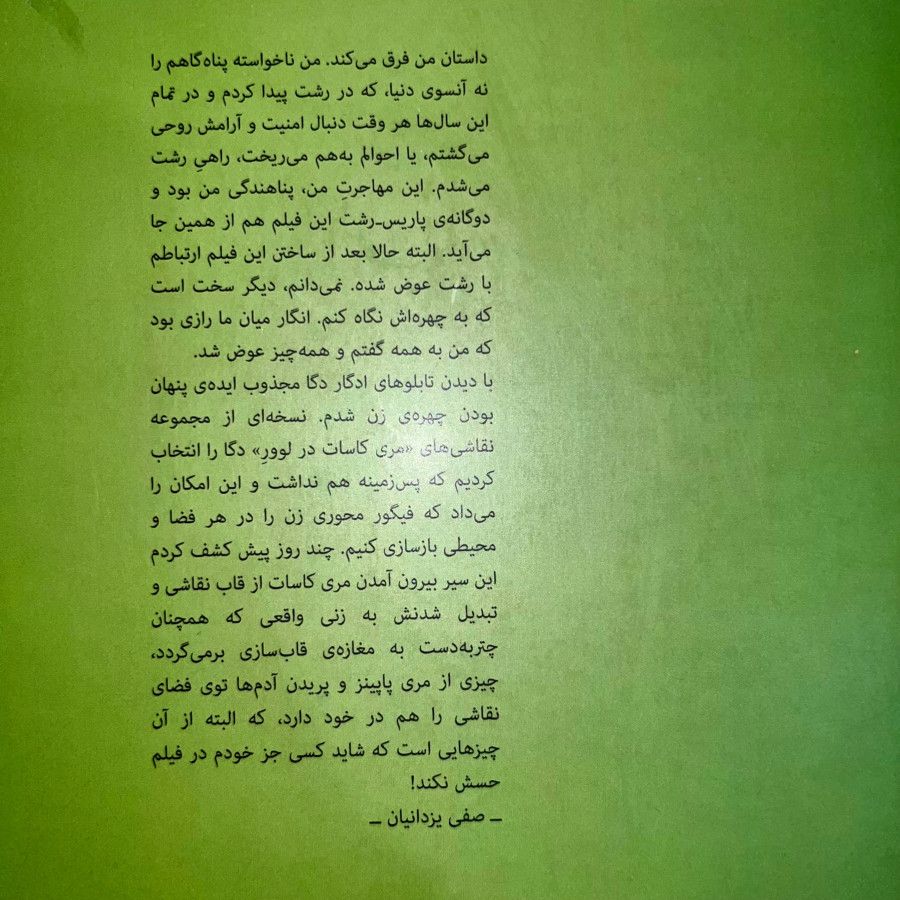 داستان من فرق می‌کند. من ناخواسته پناه‌گاهم را
نه آنسوی دنیا، که در رشت پیدا کردم و در تمام
این سال‌ها هر وقت دنبال امنیت و آرامش روحی
می‌گشتم، یا احوالم به‌هم می‌ریخت، راهیِ رشت
می‌شدم. این مهاجرتِ من، پناهندگی من بود و
دوگانه‌ی پاریس‌ـ‌رشت این فیلم هم از همین جا
می‌آید. البته حالا بعد از ساختن این فیلم ارتباطم
با رشت عوض شده. نمی‌دانم، دیگر سخت است
که به چهره‌اش نگاه کنم. انگار میان ما رازی بود
که من به همه گفتم و همه‌چیز عوض شد.
با دیدن تابلوهای ادگار دگا مجذوب ایده‌ی پنهان
بودن چهره‌ی زن شدم. نسخه‌ای از مجموعه
نقاشی‌های «مری کاسات در لوورِ» دگا را انتخاب
کردیم که پس‌زمینه هم نداشت و این امکان را
می‌داد که فیگور محوری زن را در هر فضا و
محیطی بازسازی کنیم. چند روز پیش کشف کردم
این سیر بیرون آمدن مری کاسات از قاب نقاشی و
تبدیل شدنش به زنی واقعی که همچنان
چتربه‌دست به مغازه‌ی قاب‌سازی برمی‌گردد،
چیزی از مری پاپینز و پریدن آدم‌ها توی فضای
نقاشی را هم در خود دارد، که البته از آن
چیزهایی است که شاید کسی جز خودم در فیلم
حسش نکند!
ــ صفی یزدانیان ــ